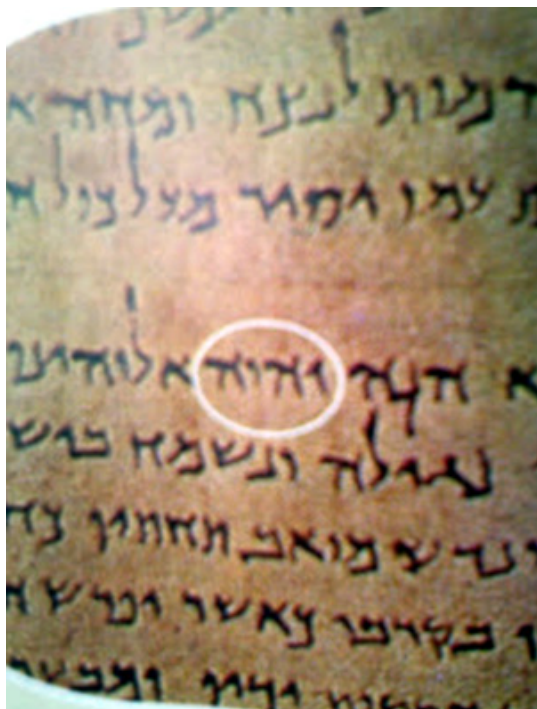 המות לנצח ומחה א
ת עמו יסיר מעל כול ה
א הנה יהוה אלוהינו
נגילה ונשמח ביש
ונדש מואב תחתיו כה
ו בקרבו כאשר יפרש ה
ידיו ומבצר